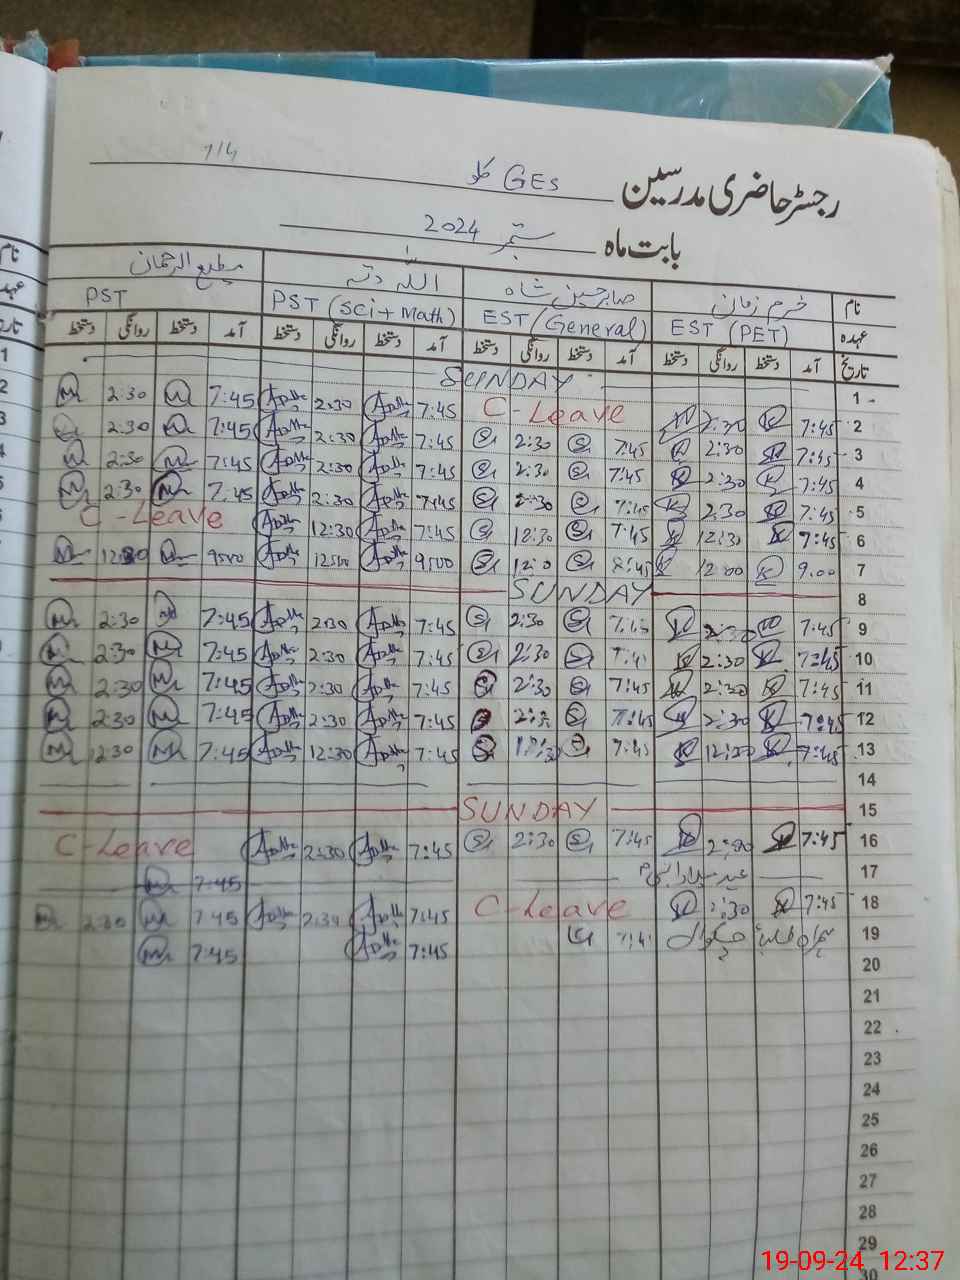 7/4
رجسٹر حاضری مدرسین GES کلو
بابت ماہ ستمبر 2024
نام خرم زمان صابر حسین شاہ اللہ دتہ مطیع الرحمان
عہدہ EST (PET) EST (General) PST (Sci + Math) PST
تاریخ آمد دستخط روانگی دستخط آمد دستخط روانگی دستخط آمد دستخط روانگی دستخط آمد دستخط روانگی دستخط
1 SUNDAY
2 7:45 2:30 C-Leave 7:45 2:30 7:45 2:30
3 7:45 2:30 7:45 2:30 7:45 2:30 7:45 2:30
4 7:45 2:30 7:45 2:30 7:45 2:30 7:45 2:30
5 7:45 2:30 7:45 2:30 7:45 2:30 7:45 2:30
6 7:45 12:30 7:45 12:30 7:45 12:30 C-Leave
7 9:00 12:00 8:45 12:0 9:00 12:00 9:00
8 SUNDAY
9 7:45 2:30 7:45 2:30 7:45 2:30 7:45 2:30
10 7:45 2:30 7:4 2:30 7:45 2:30 7:45 2:30
11 7:45 2:30 7:45 2:30 7:45 2:30 7:45 2:30
12 7:45 2:30 7:45 7:45 2:30 7:45 2:30
13 7:45 7:45 7:45 12:30 7:45 12:30
14
15 SUNDAY
16 7:45 7:45 2:30 7:45 2:30 C-Leave
17 عید میلاد النبی 7:45
18 7:45 2:30 C-Leave 7:45 2:30 7:45 2:30
19 ہمراہ طلباء چکوال 7:4 7:45 7:45
20
21
22
23
24
25
26
27
28
29
30
19-09-24 12:37